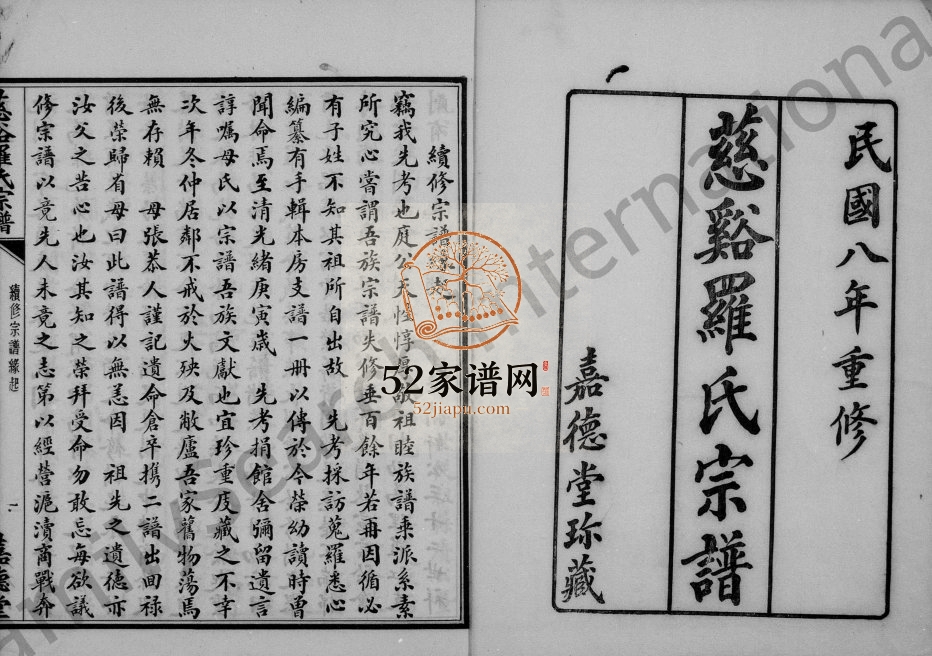 民國八年重修
慈谿羅氏宗譜
嘉德堂珎藏
續修宗譜緣起
竊我先考也庭公天性惇厚敬祖睦族譜乘派系素
所究心嘗謂吾族宗譜失修垂百餘年若再因循必
有子姓不知其祖所自出故 先考採訪蒐羅悉心
編纂有手輯本房支譜一册以傳於今榮幼讀時曾
聞命焉至清光緒庚寅歲 先考捐館舍彌留遺言
諄囑母氏以宗譜吾族文獻也宜珍重庋藏之不幸
次年冬仲居鄰不戒於火殃及敝廬吾家舊物蕩焉
無存賴 母張恭人謹記遺命倉卒攜二譜出回祿
後榮歸省母曰此譜得以無恙因 祖先之遺德亦
汝父之苦心也汝其知之榮拜受命勿敢忘每欲議
修宗譜以竟先人未竟之志第以經營滬瀆商戰奔
慈谿羅氏宗譜
續修宗譜緣起
一
嘉德堂
52家谱网
52jiapu.com
FamilySearch International